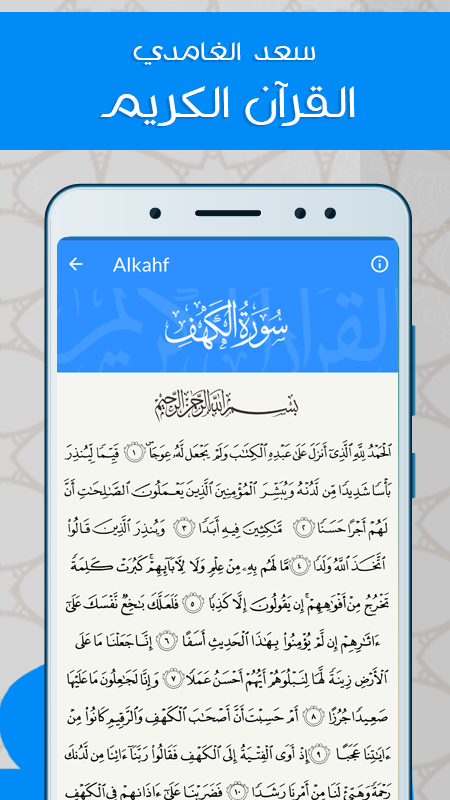 سعد الغامدي
القرآن الكريم
Alkahf
سُورَةُ الْكَهْفِ
بِسْمِ اللَّهِ الرَّحْمَٰنِ الرَّحِيمِ
ٱلْحَمْدُ لِلَّهِ ٱلَّذِىٓ أَنزَلَ عَلَىٰ عَبْدِهِ ٱلْكِتَـٰبَ وَلَمْ يَجْعَل لَّهُۥ عِوَجَاۜ ١ قَيِّمًا لِّيُنذِرَ
بَأْسًا شَدِيدًا مِّن لَّدُنْهُ وَيُبَشِّرَ ٱلْمُؤْمِنِينَ ٱلَّذِينَ يَعْمَلُونَ ٱلصَّـٰلِحَـٰتِ أَنَّ
لَهُمْ أَجْرًا حَسَنًا ٢ مَّـٰكِثِينَ فِيهِ أَبَدًا ٣ وَيُنذِرَ ٱلَّذِينَ قَالُوا۟
ٱتَّخَذَ ٱللَّهُ وَلَدًا ٤ مَّا لَهُم بِهِۦ مِنْ عِلْمٍ وَلَا لِـَٔابَآئِهِمْ ۚ كَبُرَتْ كَلِمَةً
تَخْرُجُ مِنْ أَفْوَٰهِهِمْ ۚ إِن يَقُولُونَ إِلَّا كَذِبًا ٥ فَلَعَلَّكَ بَـٰخِعٌ نَّفْسَكَ عَلَىٰٓ
ءَاثَـٰرِهِمْ إِن لَّمْ يُؤْمِنُوا۟ بِهَـٰذَا ٱلْحَدِيثِ أَسَفًا ٦ إِنَّا جَعَلْنَا مَا عَلَى
ٱلْأَرْضِ زِينَةً لَّهَا لِنَبْلُوَهُمْ أَيُّهُمْ أَحْسَنُ عَمَلًا ٧ وَإِنَّا لَجَـٰعِلُونَ مَا عَلَيْهَا
صَعِيدًا جُرُزًا ٨ أَمْ حَسِبْتَ أَنَّ أَصْحَـٰبَ ٱلْكَهْفِ وَٱلرَّقِيمِ كَانُوا۟ مِنْ
ءَايَـٰتِنَا عَجَبًا ٩ إِذْ أَوَى ٱلْفِتْيَةُ إِلَى ٱلْكَهْفِ فَقَالُوا۟ رَبَّنَآ ءَاتِنَا مِن لَّدُنكَ
رَحْمَةً وَهَيِّئْ لَنَا مِنْ أَمْرِنَا رَشَدًا ١٠ فَضَرَبْنَا عَلَىٰٓ ءَاذَانِهِمْ فِى ٱلْكَهْفِ